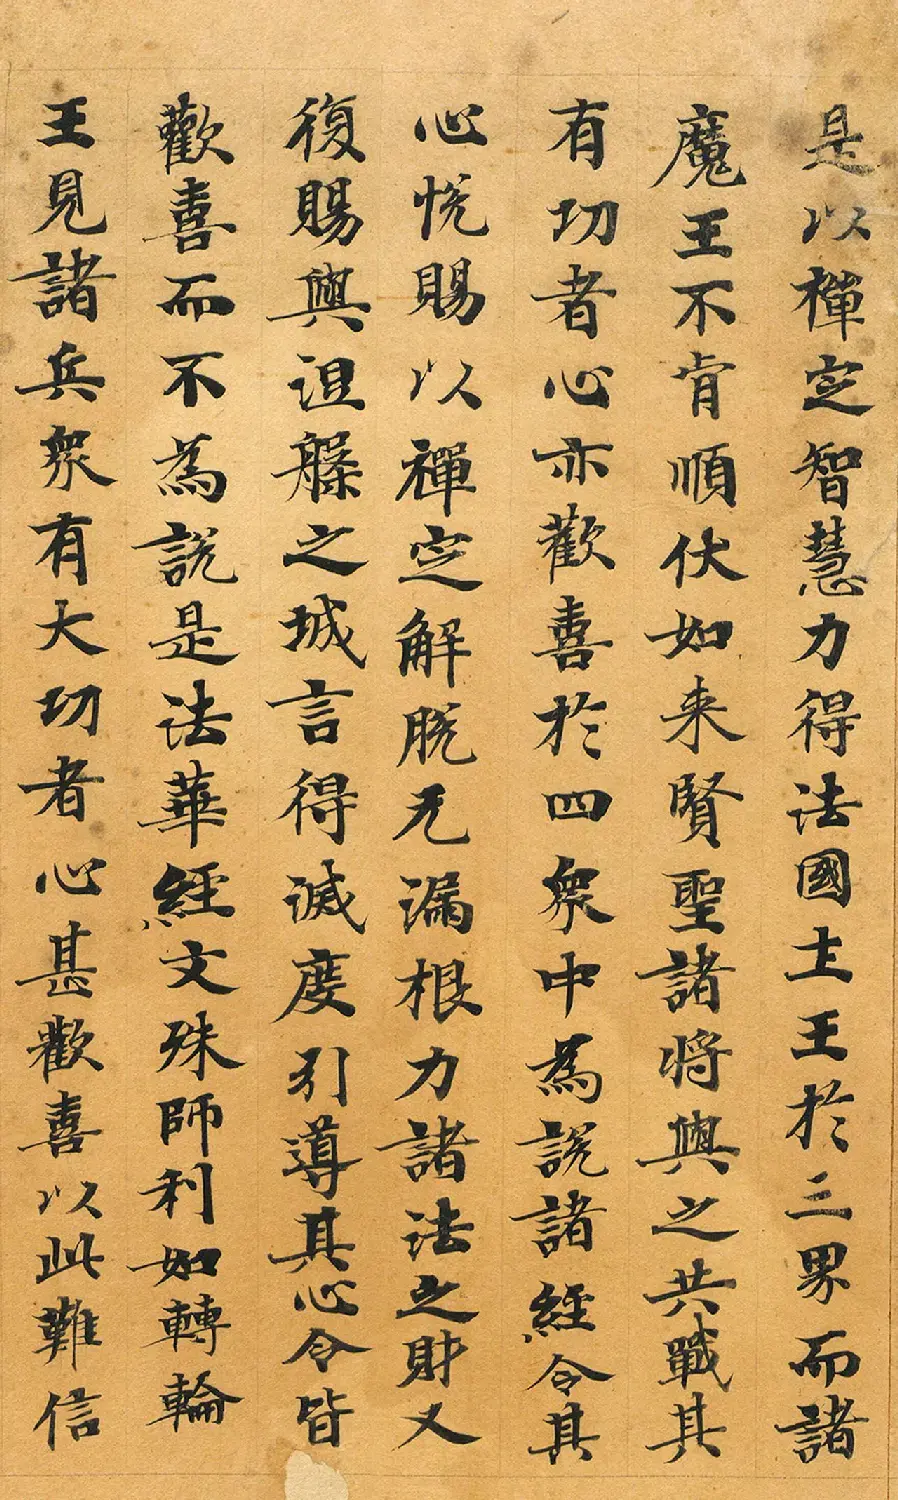 是以禪定智慧力得法國土王於三界而諸
魔王不肯順伏如来賢聖諸將與之共戰其
有功者心亦歡喜於四衆中為說諸經令其
心悅賜以禪定解脫无漏根力諸法之財又
復賜與涅槃之城言得滅度引導其心令皆
歡喜而不為說是法華經文殊師利如轉輪
王見諸兵衆有大功者心甚歡喜以此難信